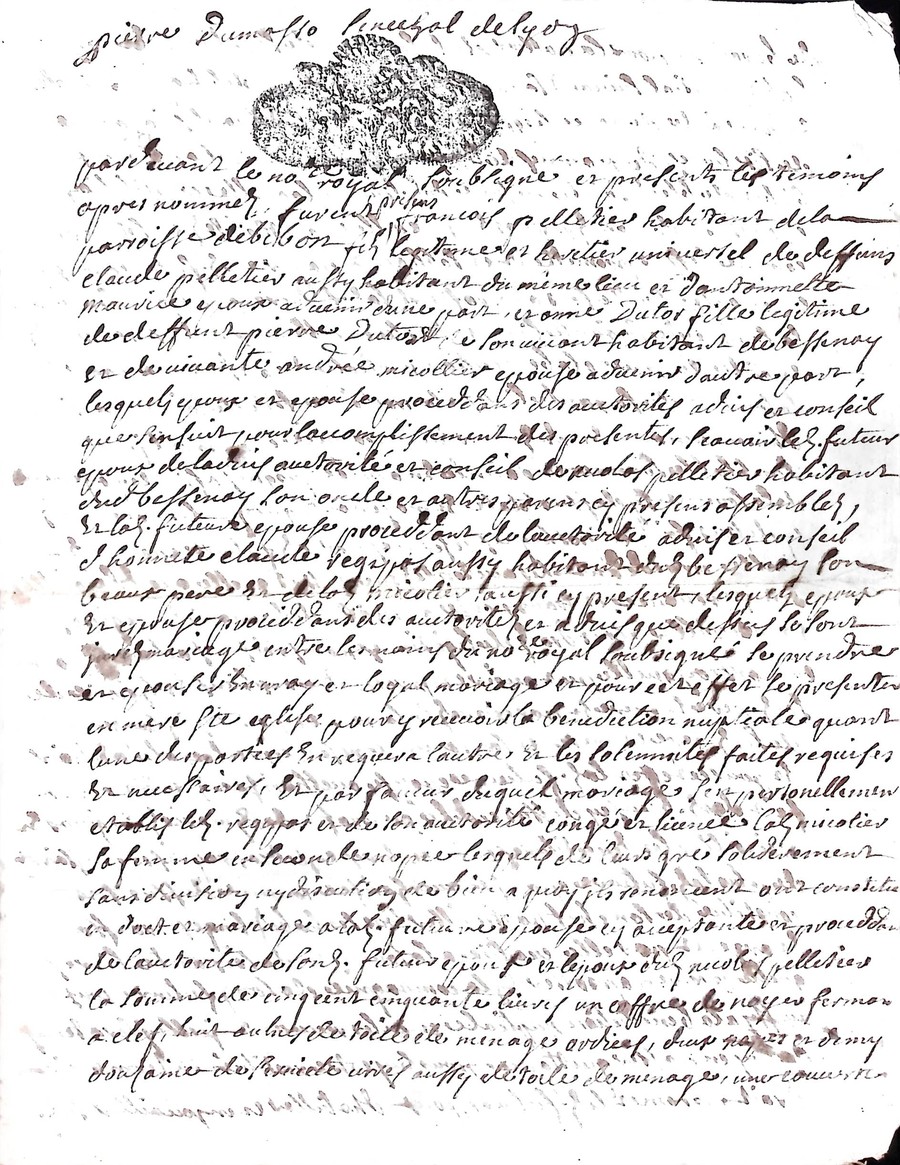 pierre Dumasso Senechal de lyon
pardevant le no.re royal soubsigné et presents les temoins
apres nommez furent presens francois pelletier habitant dela
parroisse debibost fils legitime et heritier universel de deffunt
claude pelletier aussy habitant du même lieu et d'antoinnette
mauvice epoux advenir d'une part, et anne Dutor fille legitime
de deffunt pierre Dutor de son vivant habitant de bessenay
et de vivante andrée micollier epouse advenir d'autre part,
lesquels epoux et epouse proceddans des auctorités advis et conseil
que s'ensuit, pour laccomplissement des presentes, scavoir led. futeur
epoux de ladvis auctorité et conseil de nicolas pelletier habitant
dud. bessenay son oncle et autres parens cy presens assemblez,
Et lad. future epouse proceddant de lauctorité advis et conseil
d'honnete claude aussy habitant dud. bessenay son
beaux pere Et de lad. micolier aussi cy present, lesquels epoux
Et epouse proceddans des auctoritez et advis que dessus se sont
mariage entre les mains du no.re royal soubsigné se prendre
et epouser En vray et loyal mariage et pour cet effet se presenter
en mere Ste eglise pour y recevoir la benediction nuptiale quant
lune des parties En requera lautre Et les solennités faites requises
Et necessaires, Et par faveur duquel mariage s'en personellement
etablis led. et de son auctorité congé et licence lad. micolier
sa femme en seconde nopce lesquels de leurs gré solidairement
sans division ny discution de bien a quoy ils renoncent ont constitué
en dot et mariage a lad. future epouse cy acceptante et proceddant
de lauctorité de sond. futur epoux et lepoux dud. nicolas pelletier
la somme de cinq cent cinquante livres un coffre de noyer fermant
a clef, huit aulnes de toille de menage ordies, deux napes et demy
douzaine de serviete aussy de toile de menage, une couverte